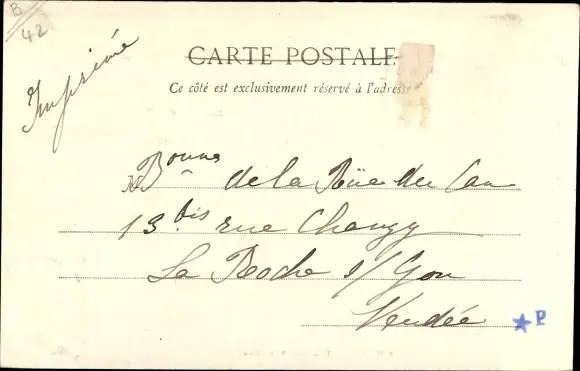 B
42
Imprimé
CARTE POSTALE
Ce côté est exclusivement réservé à l'adresse
Bonne de la Rüe du Can
13 bis rue Chanzy
La Roche s/ Yon
Vendée
P